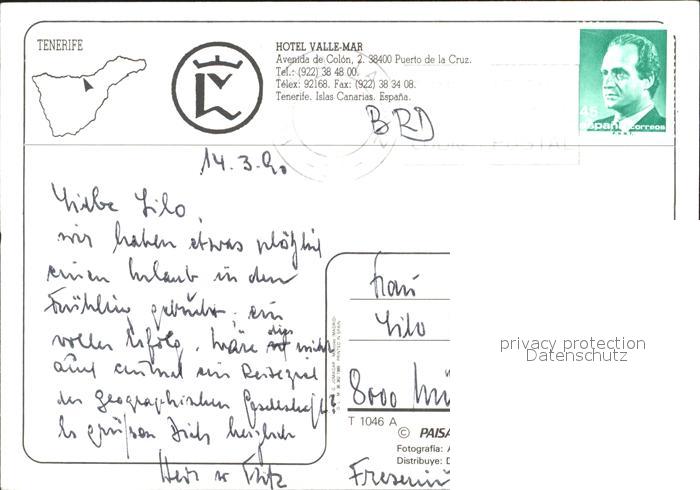 TENERIFE
HOTEL VALLE-MAR
Avenida de Colón, 2. 38400 Puerto de la Cruz.
Tel.: (922) 38 48 00.
Télex: 92168. Fax: (922) 38 34 08.
Tenerife. Islas Canarias. España.
45
españa correos
BRD
14.3.90
Liebe Lilo,
wir haben etwas plötzlich
einen Urlaub in den
Frühling gebucht: ein
voller Erfolg. Wäre dies nicht
auch einmal ein Reiseziel
der geographischen Gesellschaft?
Es grüßen Dich herzlich
Fritz
Frau
Lilo
8000 Mü
privacy protection
Datenschutz
T 1046 A
© PAISA
Fotografía: A
Distribuye: D